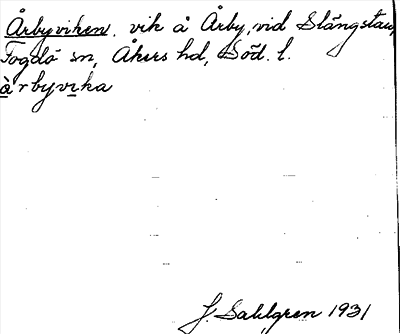 Årbyviken. vik å Årby, vid Slängstav,
Fogdö sn, Åkers hd, Söd. l.
àrbyvika
J. Sahlgren 1931